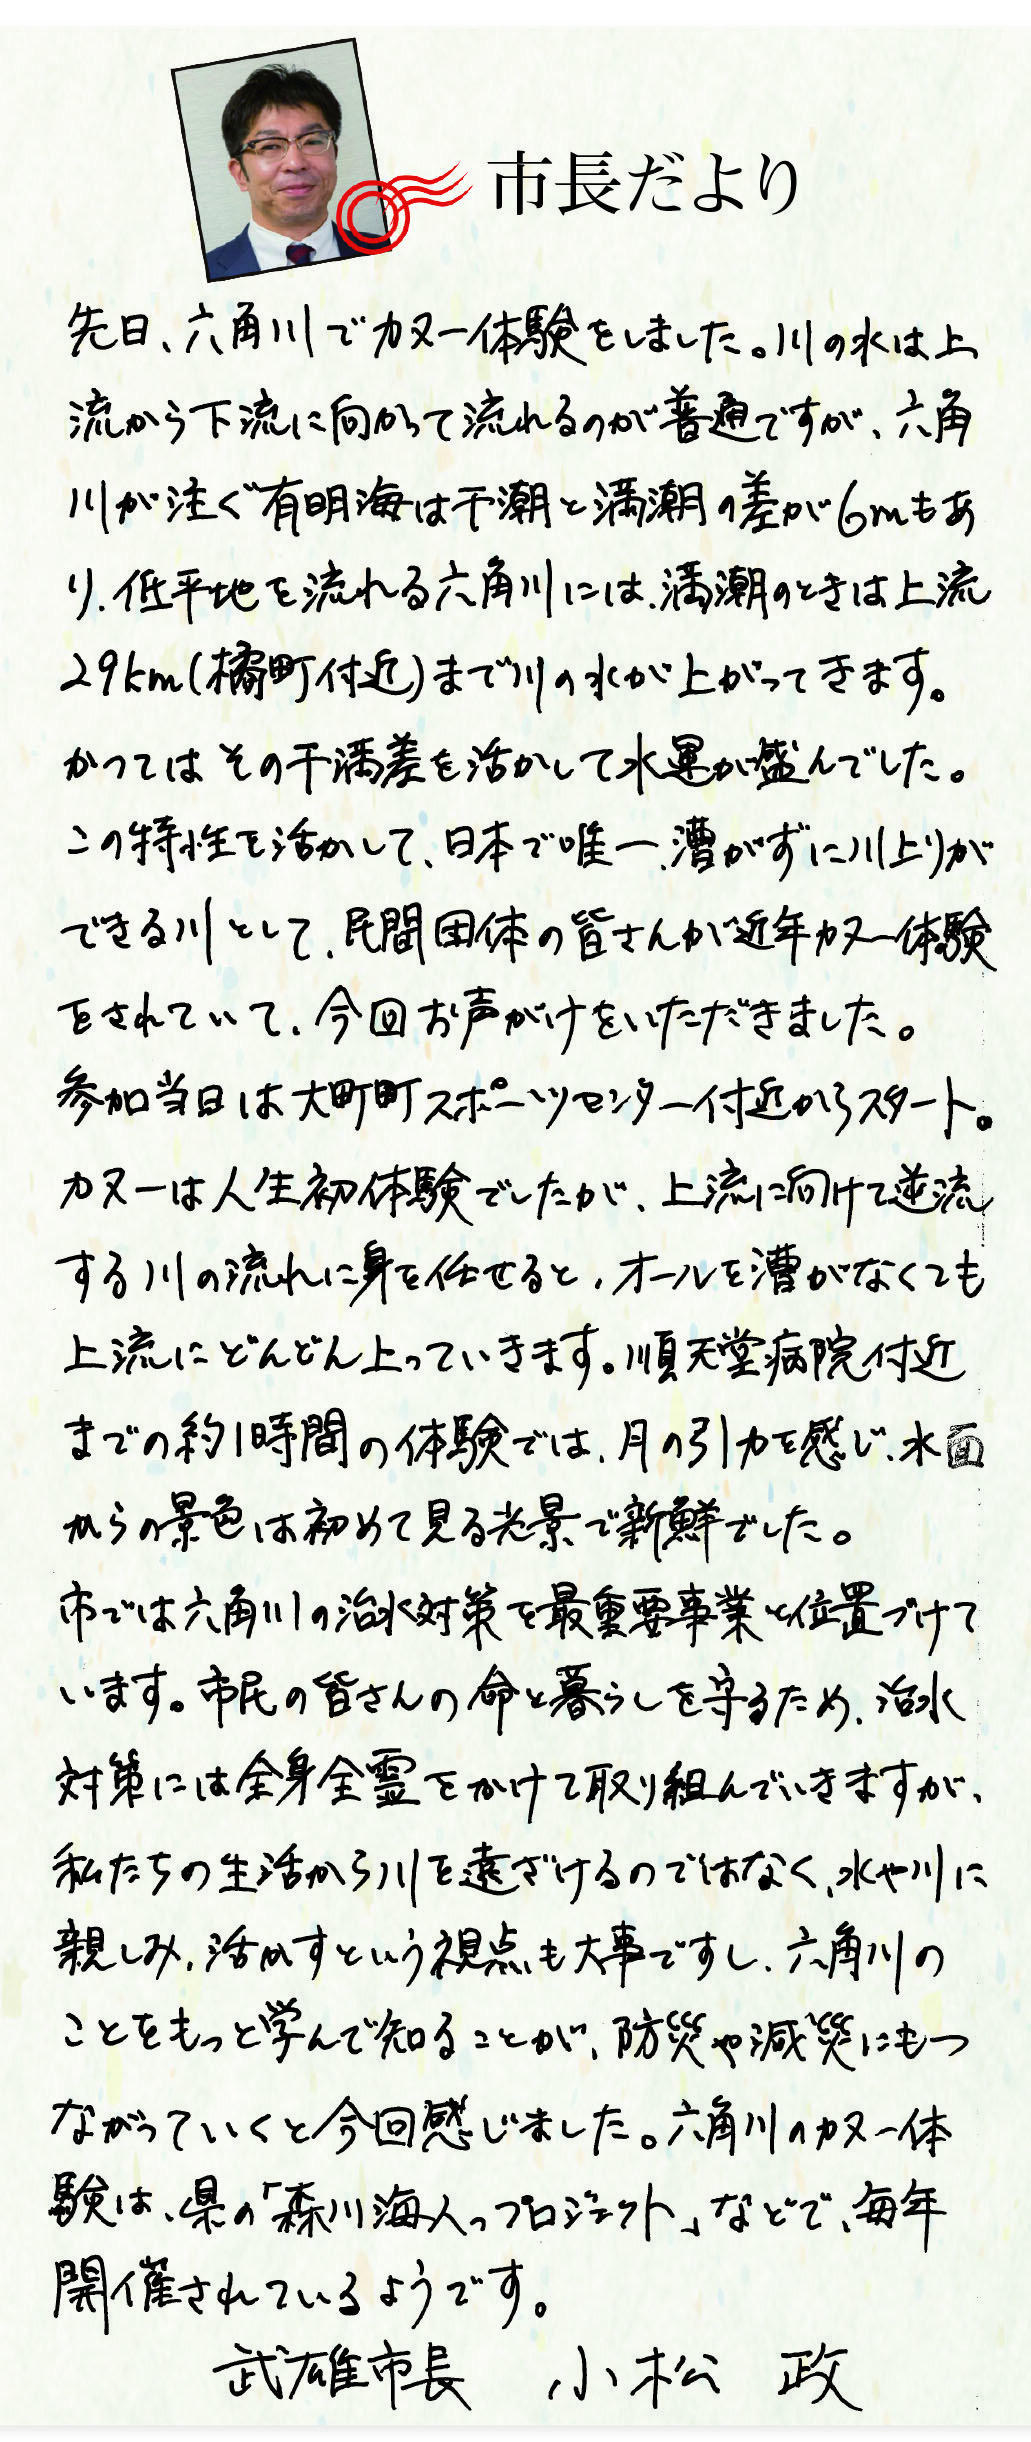 市長だより
先日、六角川でカヌー体験をしました。川の水は上
流から下流に向かって流れるのが普通ですが、六角
川が注ぐ有明海は干潮と満潮の差が6mもあ
り、低平地を流れる六角川には、満潮のときは上流
29km(橘町付近)まで川の水が上がってきます。
かつてはその干満差を活かして水運が盛んでした。
この特性を活かして、日本で唯一、漕がずに川上りが
できる川として、民間団体の皆さんが近年カヌー体験
をされていて、今回お声がけをいただきました。
参加当日は大町町スポーツセンター付近からスタート。
カヌーは人生初体験でしたが、上流に向けて逆流
する川の流れに身を任せると、オールを漕がなくても
上流にどんどん上っていきます。順天堂病院付近
までの約1時間の体験では、月の引力を感じ、水面
からの景色は初めて見る光景で新鮮でした。
市では六角川の治水対策を最重要事業と位置づけて
います。市民の皆さんの命と暮らしを守るため、治水
対策には全身全霊をかけて取り組んでいきますが、
私たちの生活から川を遠ざけるのではなく、水や川に
親しみ、活かすという視点も大事ですし、六角川の
ことをもっと学んで知ることが、防災や減災にもつ
ながっていくと今回感じました。六角川のカヌー体
験は、県の「森川海人っプロジェクト」などで、毎年
開催されているようです。
武雄市長 小松 政